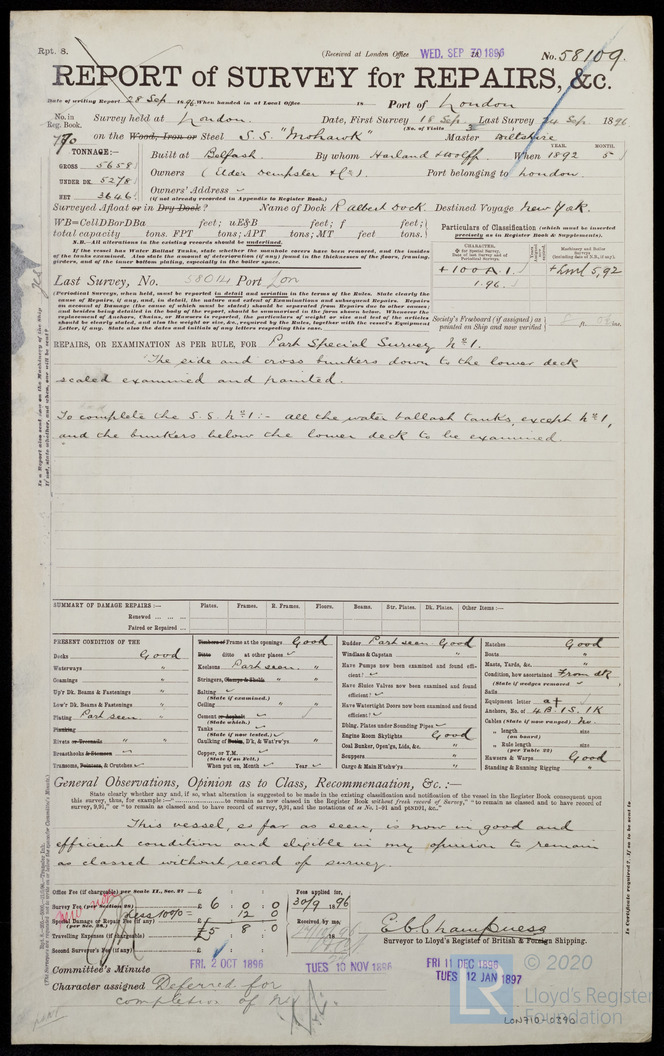 Rpt. 8.
(Received at London Office WED. SEP 30 1896
No. 58109.
REPORT of SURVEY for REPAIRS, &c.
Date of writing Report 28 Sep 1896 When handed in at Local Office 18 Port of London
No. in Reg. Book. Survey held at London. Date, First Survey 18 Sep. Last Survey 24 Sep. 1896
(No. of Visits 3
on the Wood, Iron or Steel S.S. "Mohawk" Master Wiltshire
TONNAGE:—
GROSS 5658
UNDER DK. 5278
NET 3646
Built at Belfast. By whom Harland & Wolff. When 1892 5
YEAR. MONTH.
Owners (Elder Dempster & Co.) Port belonging to London.
Owners' Address
(if not already recorded in Appendix to Register Book.)
Surveyed Afloat or in Dry Dock? Name of Dock R Albert Dock. Destined Voyage New York.
WB=CellDBorDBa feet; uE&B feet; f feet;
total capacity tons. FPT tons; APT tons; MT feet tons.
N.B.—All alterations in the existing records should be underlined.
If the vessel has Water Ballast Tanks, state whether the manhole covers have been removed, and the insides
of the tanks examined. Also state the amount of deterioration (if any) found in the thicknesses of the floors, framing,
girders, and of the inner bottom plating, especially in the boiler space.
Particulars of Classification (which must be inserted
precisely as in Register Book & Supplements).
+100A.1.
1.96.
+LMC 5,92
Last Survey, No. 58014 Port Lon
Society's Freeboard (if assigned) as
painted on Ship and now verified
(Periodical Surveys, when held, must be reported in detail and seriatim in the terms of the Rules. State clearly the
cause of Repairs, if any, and, in detail, the nature and extent of Examinations and subsequent Repairs. Repairs
on account of Damage (the cause of which must be stated) should be separated from Repairs due to other causes;
and besides being detailed in the body of the report, should be summarised in the form shown below. Whenever the
replacement of Anchors, Chains, or Hawsers is reported, the particulars of weight or size and test of the articles
should be clearly stated, and also the weight or size, &c., required by the Rules, together with the vessel's Equipment
Letter, if any. State also the dates and initials of any letters respecting this case.
REPAIRS, OR EXAMINATION AS PER RULE, FOR Part Special Survey No. 1.
The side and cross bunkers down to the lower deck
scaled examined and painted.
To complete the S.S. No. 1:- all the water ballast tanks, except No. 1,
and the bunkers below the lower deck to be examined.
SUMMARY OF DAMAGE REPAIRS:— Plates. Frames. R. Frames. Floors. Beams. Str. Plates. Dk. Plates. Other Items:—
Renewed ... ... ...
Faired or Repaired ...
PRESENT CONDITION OF THE
Decks Good
Waterways "
Coamings "
Up'r Dk. Beams & Fastenings "
Low'r Dk. Beams & Fastenings "
Plating Part seen "
Planking
Rivets or Treenails "
Breasthooks & Stemson
Transoms, Pointers, & Crutches
Timbers or Frame at the openings. Good
Ditto ditto at other places
Keelsons Part seen "
Stringers, Clamps & Shelfs " "
Salting
(State if examined.)
Ceiling "
Cement or Asphalt
(State which.)
Tanks
(State if now tested.)
Caulking of Bottm, Dk, & Wat'rw'ys
Copper, or Y.M.
(State if on Felt.)
When put on, Month Year
Rudder Part seen Good
Windlass & Capstan "
Have Pumps now been examined and found effi-
cient?
Have Sluice Valves now been examined and found
efficient?
Have Watertight Doors now been examined and found
efficient?
Dblng. Plates under Sounding Pipes
Engine Room Skylights Good
Coal Bunker, Open'gs, Lids, &c. "
Scuppers "
Cargo & Main H'tchw'ys "
Hatches Good
Boats "
Masts, Yards, &c. "
Condition, how ascertained From dk
(State if wedges removed
Sails
Equipment letter a+
Anchors, No. of 4B. 1S. 1K
Cables (State if now ranged) No.
" length size
(on board)
" Rule length size
(per Table 22)
Hawsers & Warps Good
Standing & Running Rigging "
General Observations, Opinion as to Class, Recommendation, &c.:—
State clearly whether any and, if so, what alteration is suggested to be made in the existing classification and notification of the vessel in the Register Book consequent upon
This vessel, so far as seen, is now in good and
efficient condition and eligible in my opinion to remain
as classed without record of survey.
Office Fee (if chargeable) per Scale II., Sec. 27 £
Survey Fee (per Section 28) £ 6 : 0 : 0
Special Damage or Repair Fee (if any) less 10% £ 12 0
(per Sec. 28.)
Travelling Expenses (if chargeable) £5 8 0
Second Surveyor's Fee (if any) £
Fees applied for,
30/9 1896
Received by me,
E C Champness
Surveyor to Lloyd's Register of British & Foreign Shipping.
Committee's Minute FRI. 2 OCT 1896 TUES 10 NOV 1896 FRI 11 DEC 1896
TUES 12 JAN 1897
Character assigned Deferred for
completion of No 1
© 2020
LR
Lloyd's Register
Foundation
LON710-0390